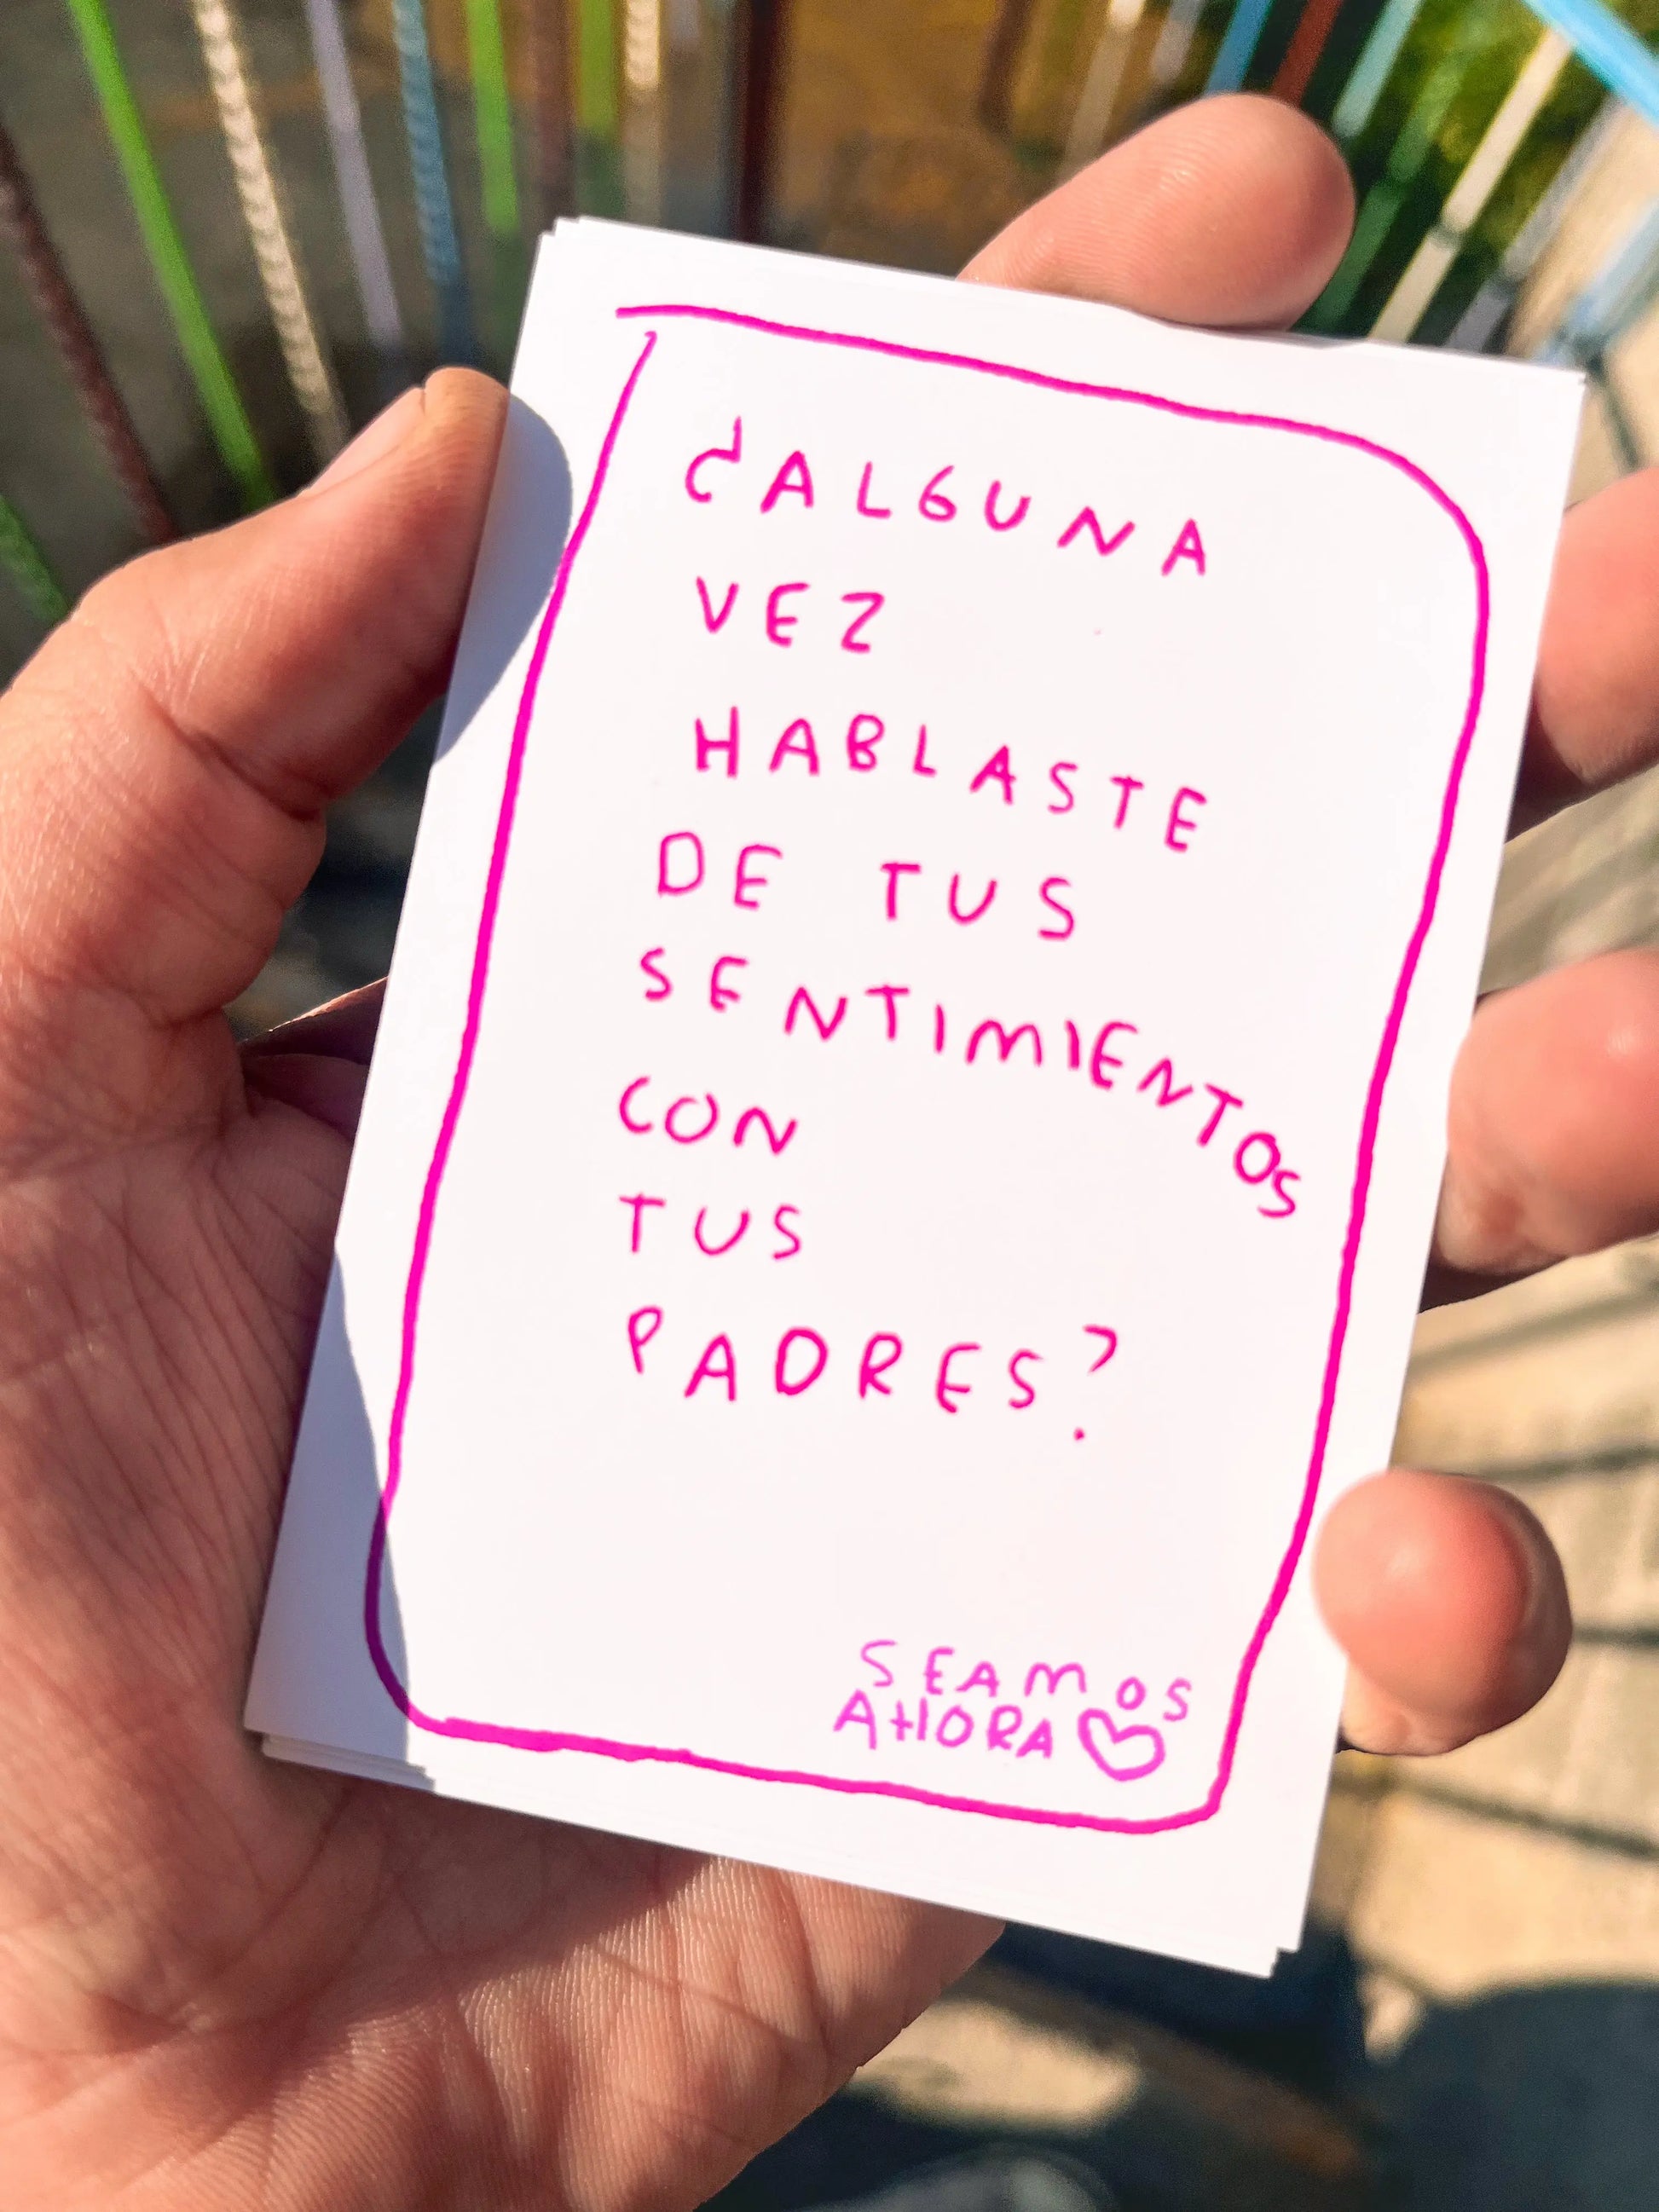 ¿ALGUNA
VEZ
HABLASTE
DE TUS
SENTIMIENTOS
CON
TUS
PADRES?
SEAMOS
AHORA